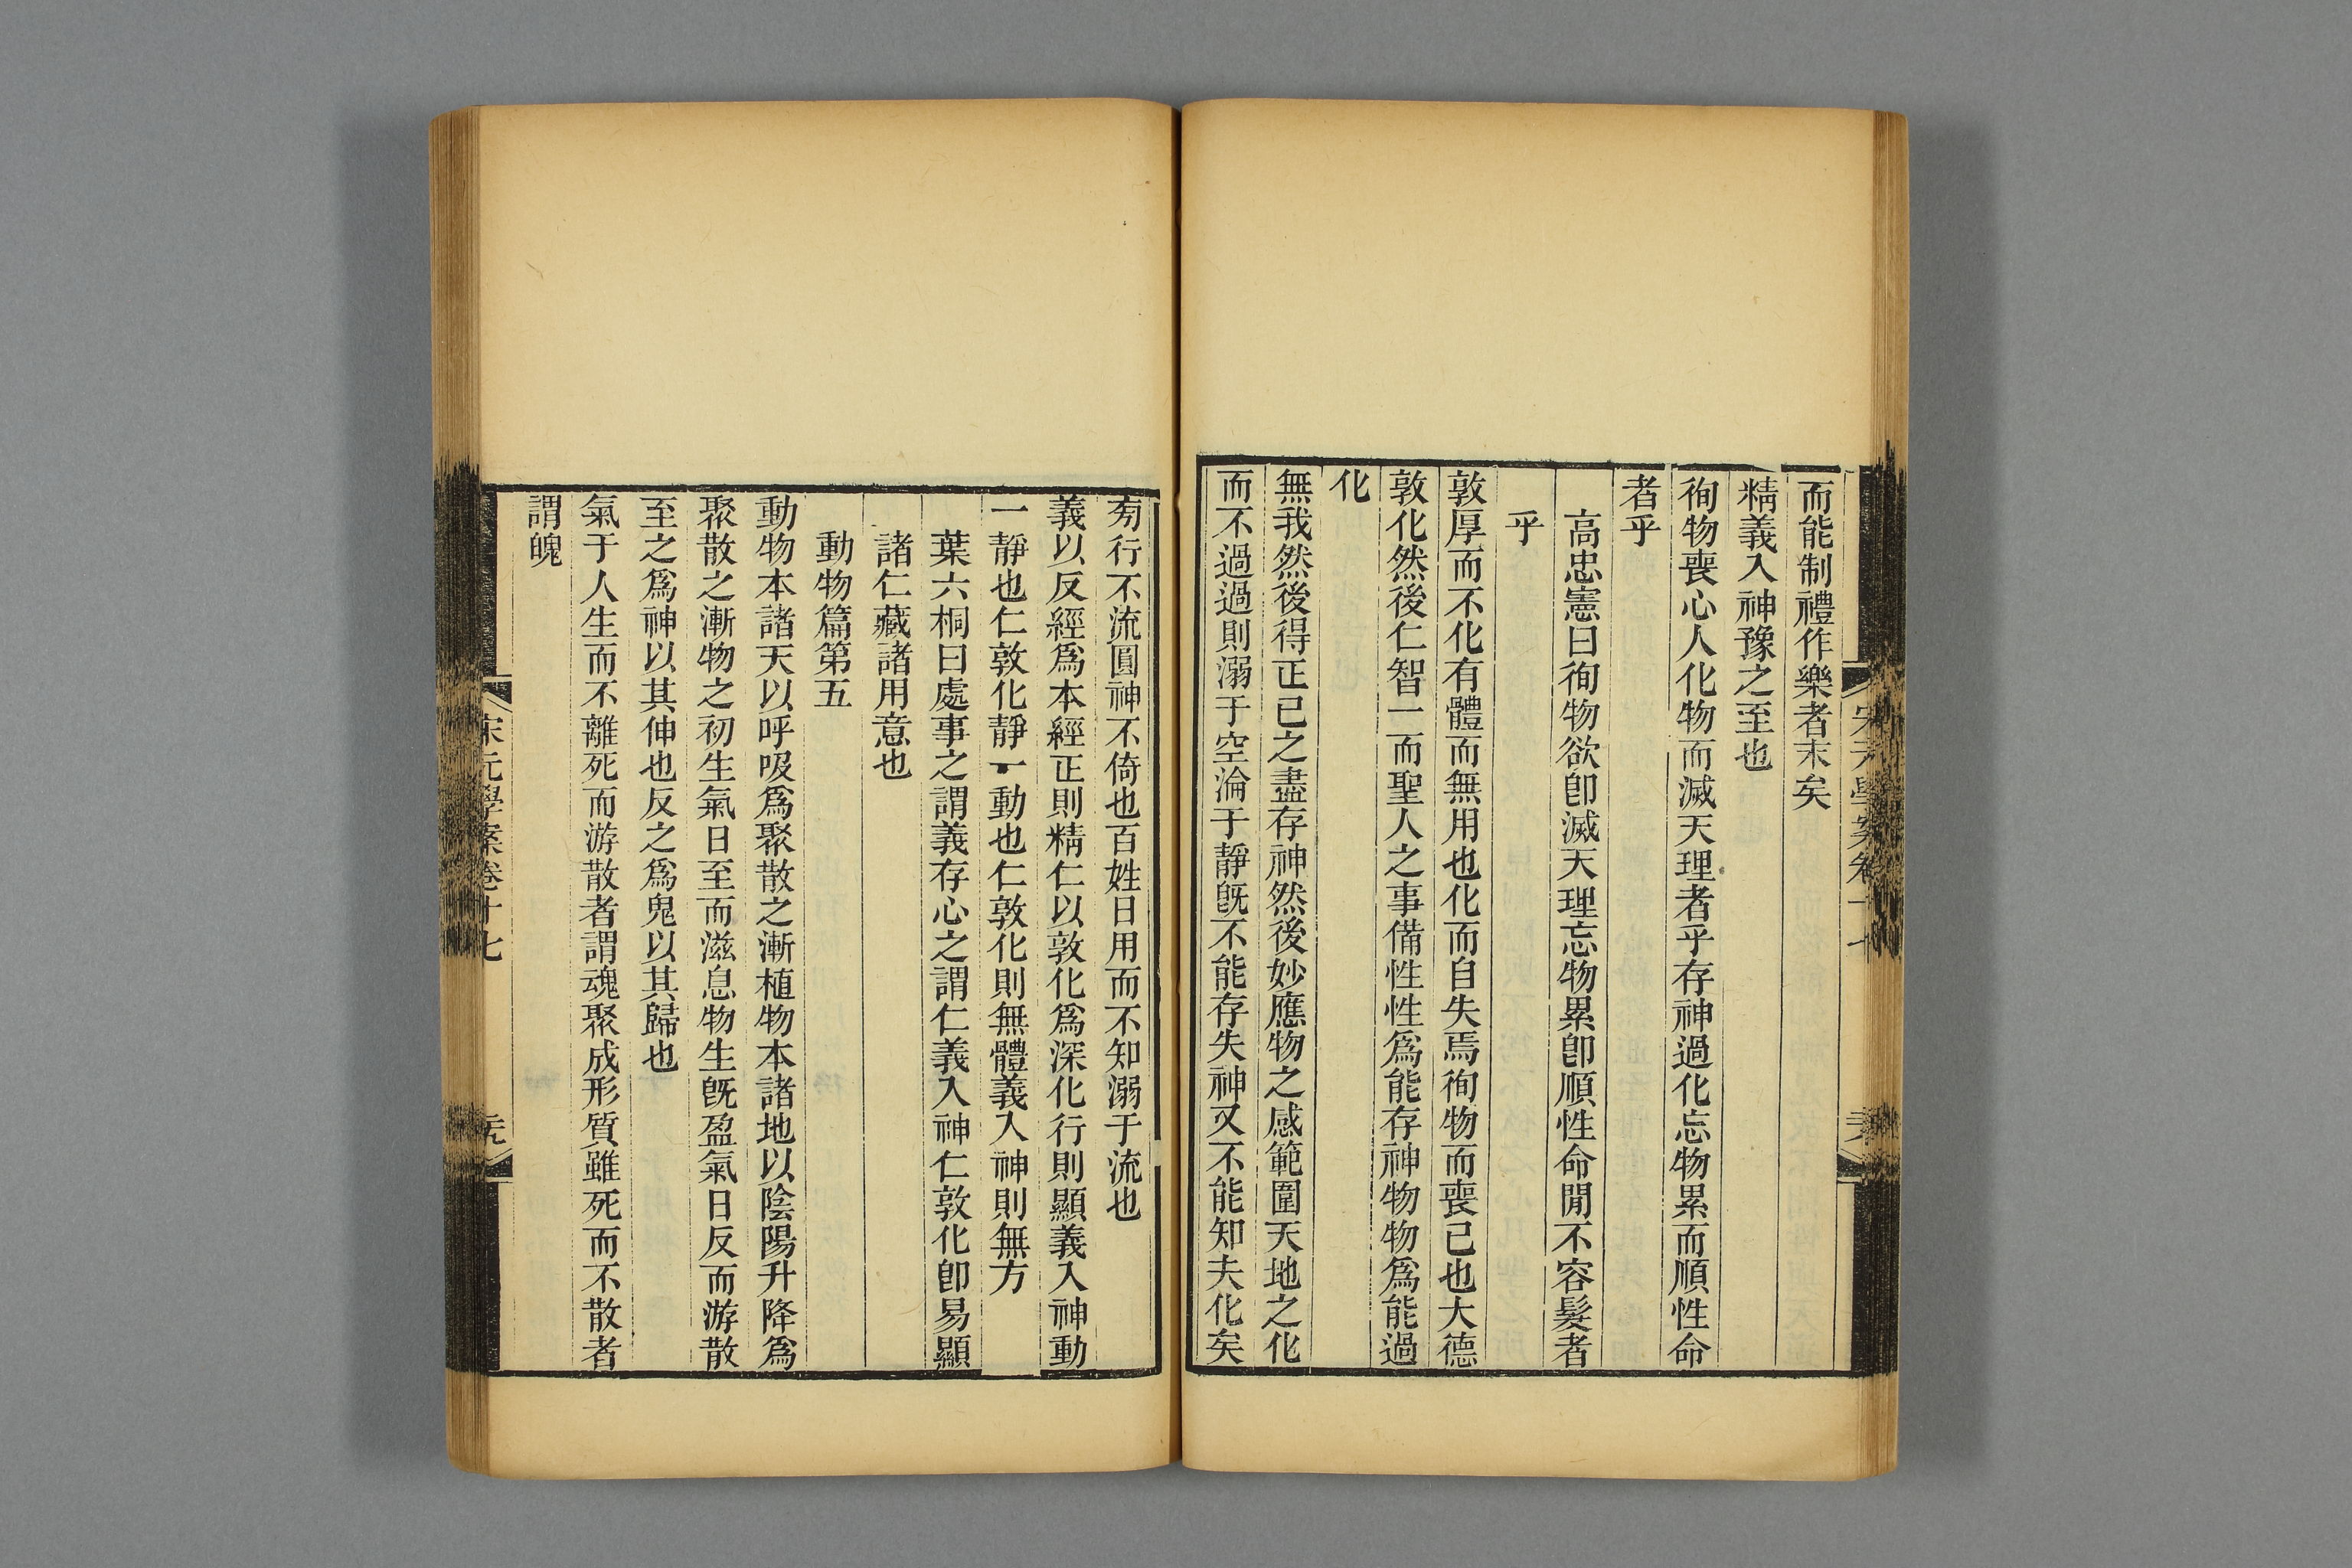 而能制禮作樂者末矣
精義入神豫之至也
徇物喪心人化物而滅天理者乎存神過化忘物累而順性命
者乎
高忠憲曰徇物欲卽滅天理忘物累卽順性命閒不容髮者
乎
敦厚而不化有體而無用也化而自失焉徇物而喪己也大德
敦化然後仁智一而聖人之事備性性爲能存神物物爲能過
化
無我然後得正已之盡存神然後妙應物之感範圍天地之化
而不過過則溺于空淪于靜旣不能存夫神又不能知夫化矣
宋元學案卷十七
旁行不流圓神不倚也百姓日用而不知溺于流也
義以反經爲本經正則精仁以敦化爲深化行則顯義入神動
一靜也仁敦化靜一動也仁敦化則無體義入神則無方
葉六桐曰處事之謂義存心之謂仁義入神仁敦化卽易顯
諸仁藏諸用意也
動物篇第五
動物本諸天以呼吸爲聚散之漸植物本諸地以陰陽升降爲
聚散之漸物之初生氣日至而滋息物生旣盈氣日反而游散
至之爲神以其伸也反之爲鬼以其歸也
氣于人生而不離死而游散者謂魂聚成形質雖死而不散者
謂魄
宋元學案卷十七